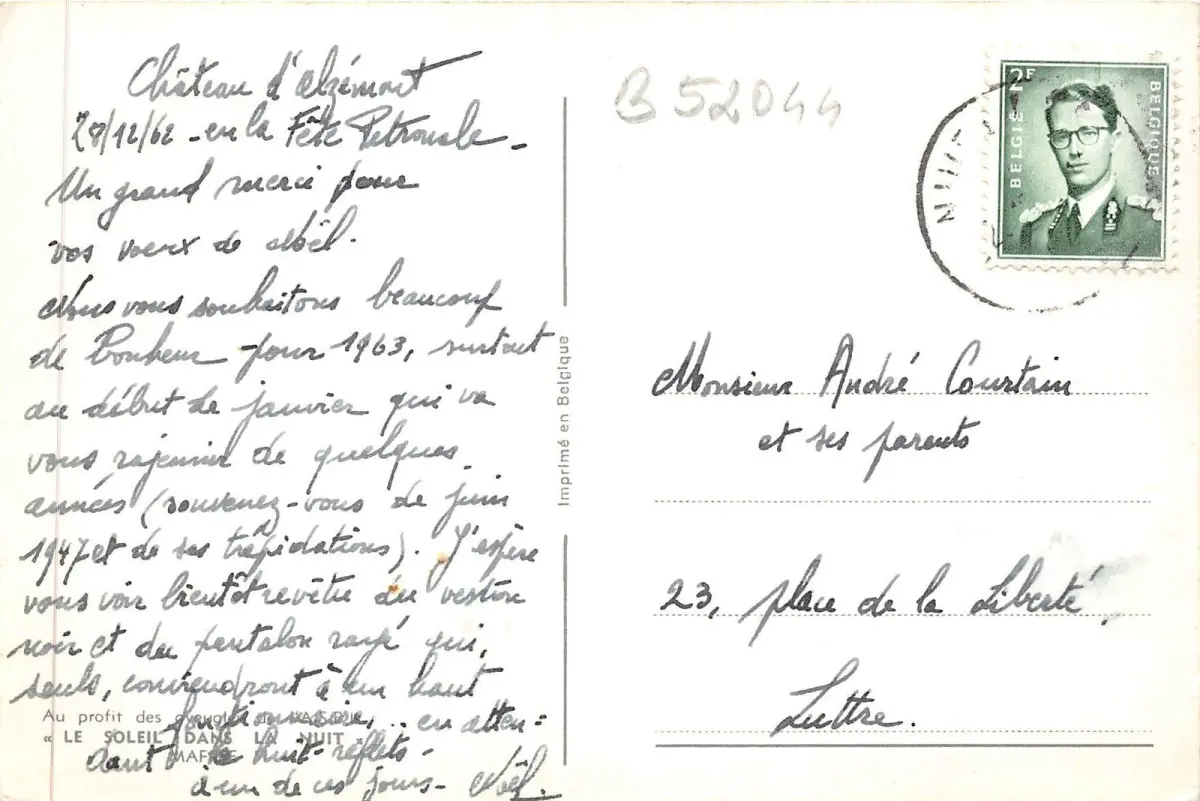 Château d'Alzémont
28/12/62 - en la Fête Petronale -
Un grand merci pour
vos voeux de Noël.
Nous vous souhaitons beaucoup
de Bonheur pour 1963, surtout
au début de janvier qui va
vous rajeunir de quelques
années (souvenez-vous de juin
1947 et de ses trépidations). J'espère
vous voir bientôt revêtu du veston
noir et du pantalon rayé qui,
seuls, conviendront à un haut
fonctionnaire, .. en atten=
dant le huit-reflets-
à un de ces jours- Noël.
Au profit des aveugles de
« LE SOLEIL DANS LA NUIT »
Imprimé en Belgique
B 52044
2F
BELGIE
BELGIQUE
Monsieur André Courtain
et ses parents
23, place de la Liberté,
Luttre.